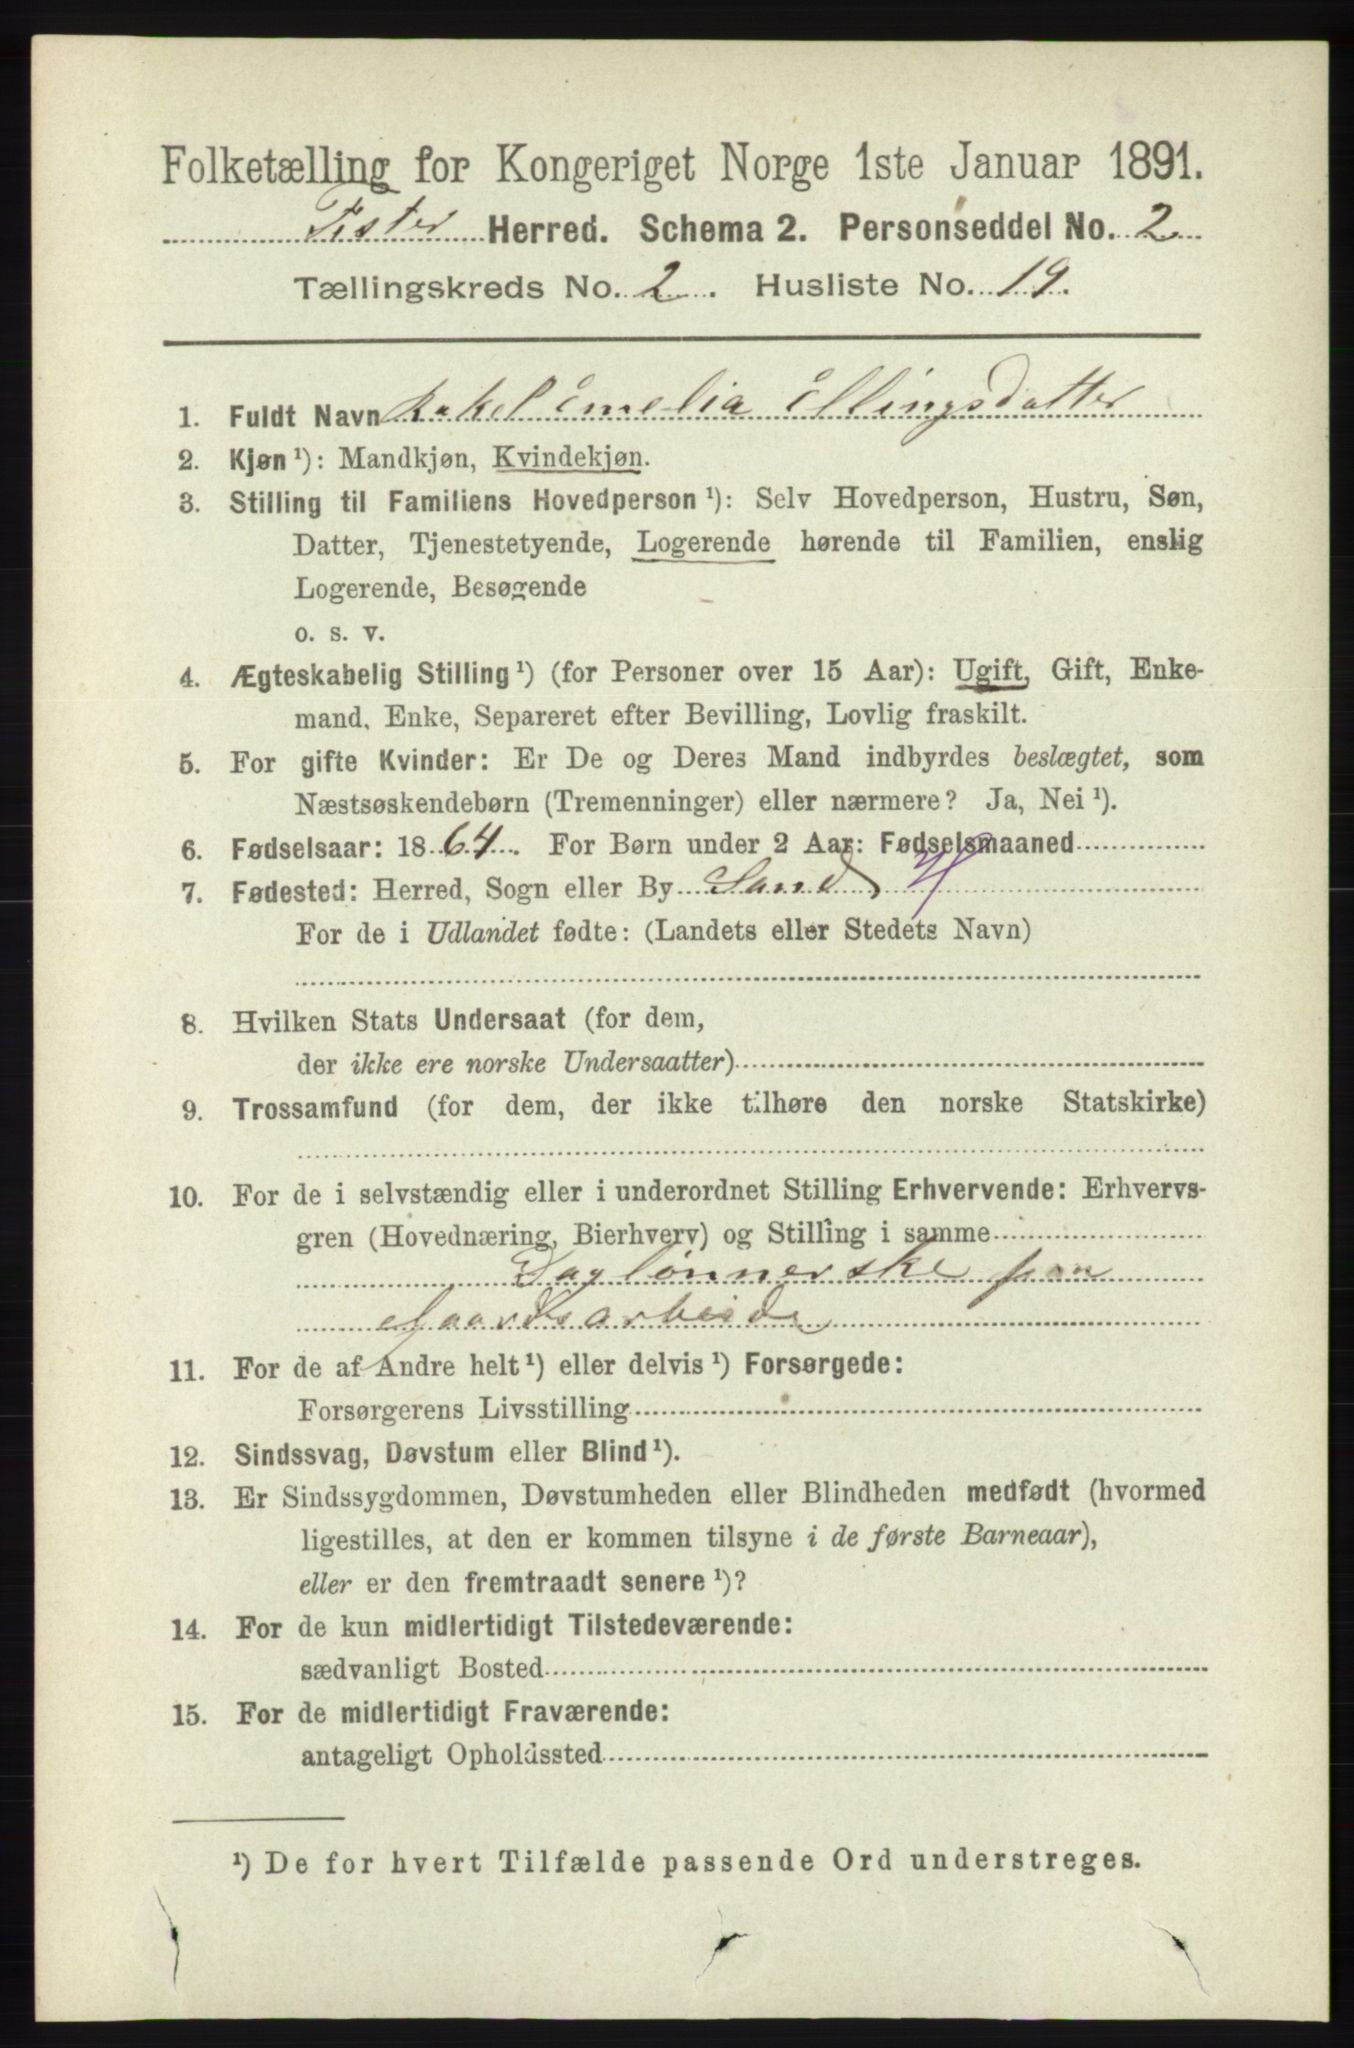 Folketælling for Kongeriget Norge 1ste Januar 1891.
Fister Herred. Schema 2. Personseddel No. 2
Tællingskreds No. 2. Husliste No. 19.
1. Fuldt Navn Rakel Emelia Ellingsdatter
2. Kjøn¹): Mandkjøn, Kvindekjøn.
3. Stilling til Familiens Hovedperson¹): Selv Hovedperson, Hustru, Søn,
Datter, Tjenestetyende, Logerende hørende til Familien, enslig
Logerende, Besøgende
o. s. v.
4. Ægteskabelig Stilling¹) (for Personer over 15 Aar): Ugift, Gift, Enke-
mand, Enke, Separeret efter Bevilling, Lovlig fraskilt.
5. For gifte Kvinder: Er De og Deres Mand indbyrdes beslægtet, som
Næstsøskendebørn (Tremenninger) eller nærmere? Ja, Nei¹).
6. Fødselsaar: 1864. For Børn under 2 Aar: Fødselsmaaned
7. Fødested: Herred, Sogn eller By Sand
For de i Udlandet fødte: (Landets eller Stedets Navn)
8. Hvilken Stats Undersaat (for dem,
der ikke ere norske Undersaatter)
9. Trossamfund (for dem, der ikke tilhøre den norske Statskirke)
10. For de i selvstændig eller i underordnet Stilling Erhvervende: Erhvervs-
gren (Hovednæring, Bierhverv) og Stilling i samme
Daglønnerske paa
Gaardsarbeide
11. For de af Andre helt¹) eller delvis¹) Forsørgede:
Forsørgerens Livsstilling
12. Sindssvag, Døvstum eller Blind¹).
13. Er Sindssygdommen, Døvstumheden eller Blindheden medfødt (hvormed
ligestilles, at den er kommen tilsyne i de første Barneaar),
eller er den fremtraadt senere¹)?
14. For de kun midlertidigt Tilstedeværende:
sædvanligt Bosted
15. For de midlertidigt Fraværende:
antageligt Opholdssted
¹) De for hvert Tilfælde passende Ord understreges.